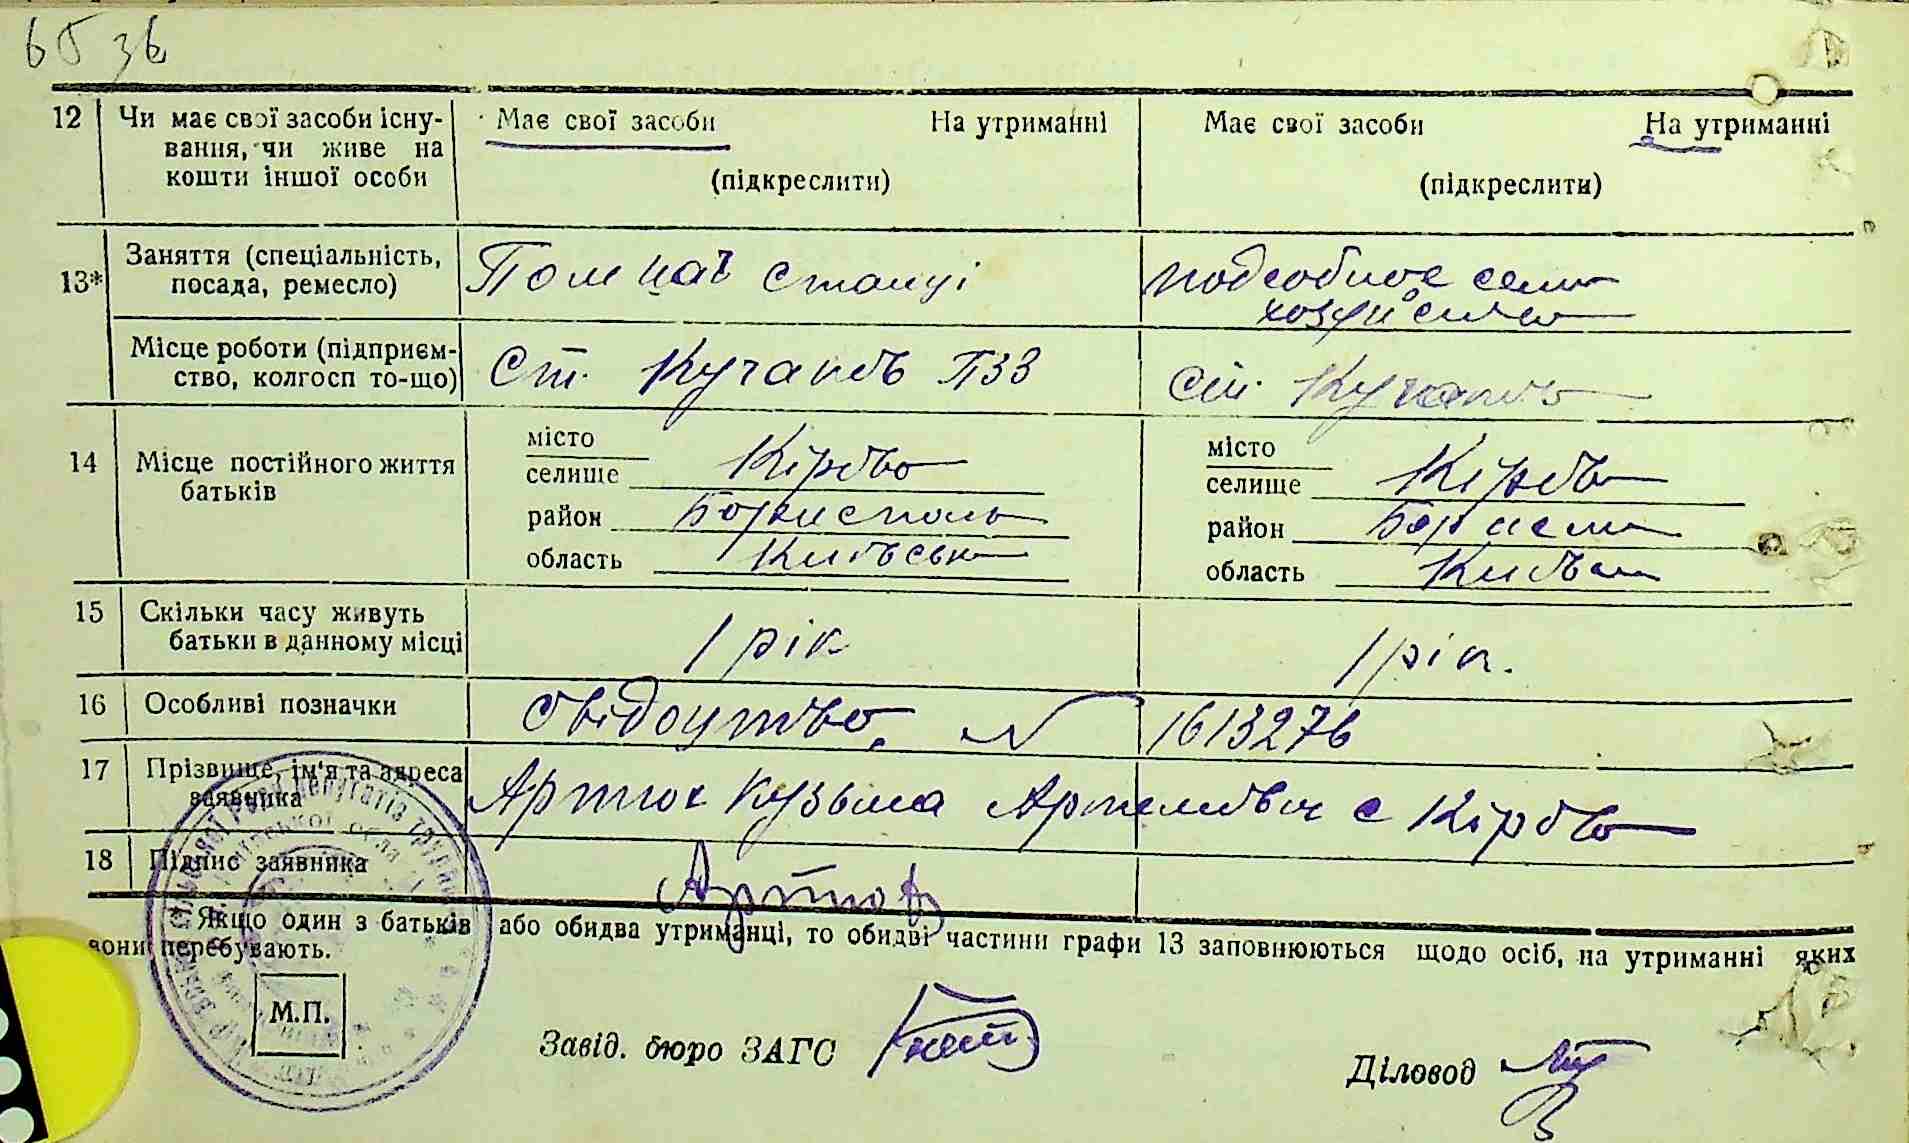 65 зв
12 Чи має свої засоби існування, чи живе на кошти іншої особи
Має свої засоби На утриманні
(підкреслити)
Має свої засоби На утриманні
(підкреслити)
13* Заняття (спеціальність, посада, ремесло)
Пом нач станції
подсобное сель хозяйство
Місце роботи (підприєм-
ство, колгосп то-що)
Ст. Кучаков ПЗЗ
ст. Кучаков
14 Місце постійного життя
батьків
місто
селище Кірово
район Бориспіль
область Київськ
місто
селище Кірово
район Борисп
область Київськ
15 Скільки часу живуть
батьки в данному місці
1 рік
1 рік.
16 Особливі позначки
свідоцтво. № 1613276
17 Прізвище, ім'я та адреса
заявника
Артюх Кузьма Артемович с Кірово
18 Підпис заявника
* Якщо один з батьків або обидва утриманці, то обидві частини графи 13 заповнюються щодо осіб, на утриманні яких
вони перебувають.
М.П.
Завід. бюро ЗАГС
Діловод